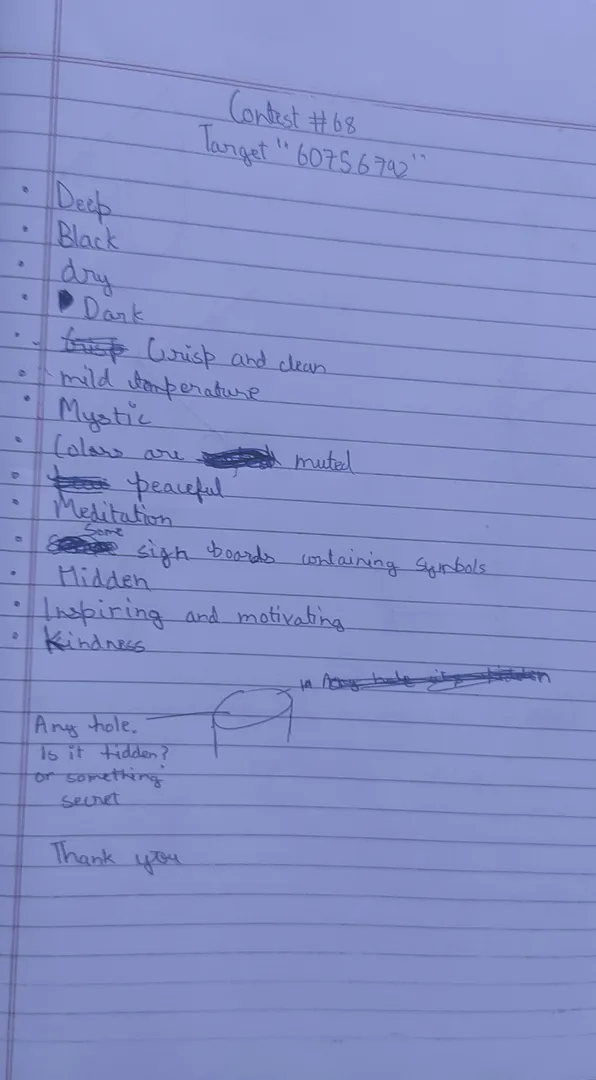 Contest #68
Target "60756792"
• Deep
• Black
• dry
• Dark
• Crisp and clean
• mild temperature
• Mystic
• Colors are muted
• peaceful
• Meditation
• Some sign boards containing symbols
• Hidden
• Inspiring and motivating
• Kindness
in
Any hole.
Is it hidden?
or something
secret
Thank you